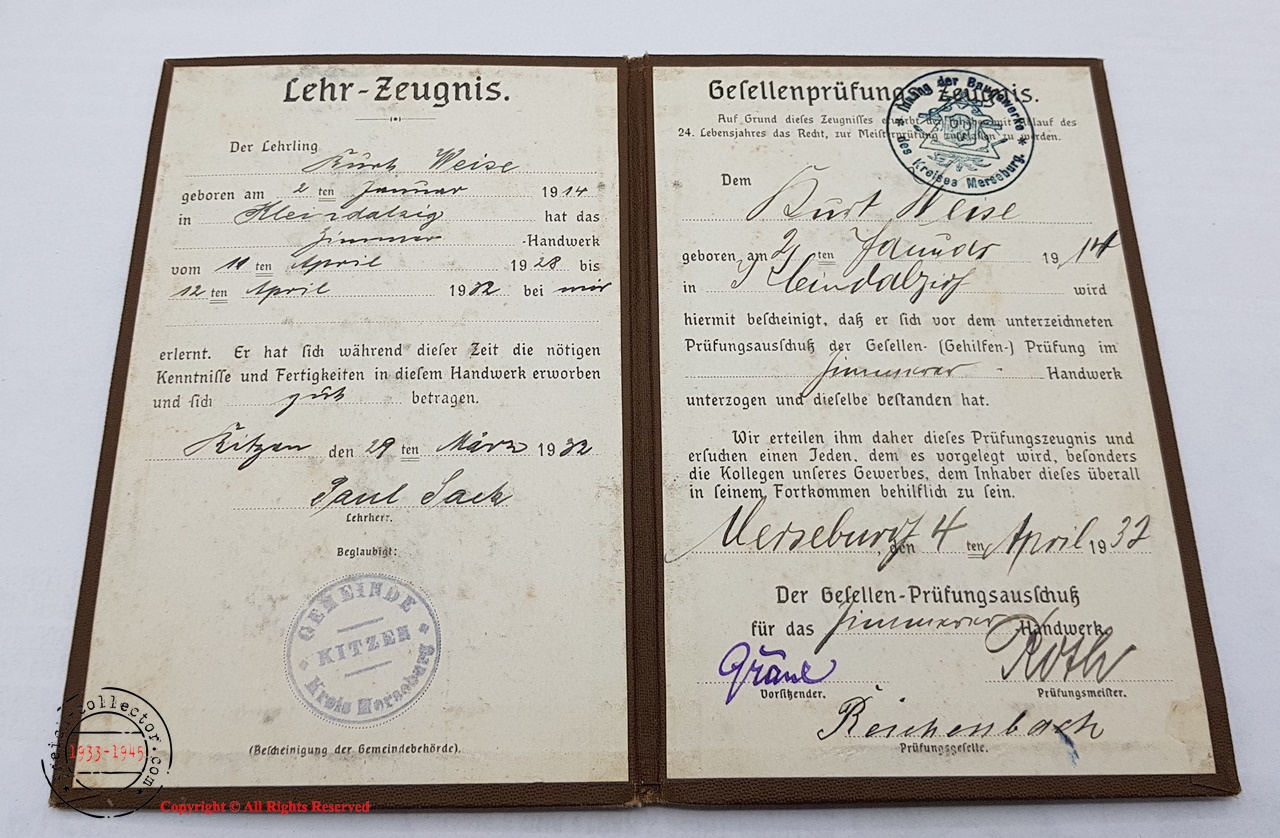 Lehr-Zeugnis.
Der Lehrling
Kurt Weise
geboren am 2 ten Januar 1914
in Kleindalzig hat das
Zimmer -Handwerk
vom 11 ten April 1928 bis
12 ten April 1932 bei mir
erlernt. Er hat sich während dieser Zeit die nötigen
Kenntnisse und Fertigkeiten in diesem Handwerk erworben
und sich gut betragen.
Kitzen den 29 ten März 1932
Paul Sack
Lehrherr.
Beglaubigt:
GEMEINDE
KITZEN
Kreis Merseburg
(Bescheinigung der Gemeindebehörde).
Gesellenprüfungs-Zeugnis.
Auf Grund dieses Zeugnisses erwirbt der Inhaber mit Ablauf des
24. Lebensjahres das Recht, zur Meisterprüfung zugelassen zu werden.
Innung der Baugewerke
des Kreises Merseburg.
Dem
Kurt Weise
geboren am 2 ten Januar 1914
in Kleindalzig wird
hiermit bescheinigt, daß er sich vor dem unterzeichneten
Prüfungsausschuß der Gesellen- (Gehilfen-) Prüfung im
Zimmerer - Handwerk
unterzogen und dieselbe bestanden hat.
Wir erteilen ihm daher dieses Prüfungszeugnis und
ersuchen einen Jeden, dem es vorgelegt wird, besonders
die Kollegen unseres Gewerbes, dem Inhaber dieses überall
in seinem Fortkommen behilflich zu sein.
Merseburg, den 4 ten April 1932
Der Gesellen-Prüfungsausschuß
für das Zimmerer -Handwerk
Gräul Roth
Vorsitzender. Prüfungsmeister.
Reichenbach
Prüfungsgeselle.
collector.com
1933-1945
Copyright © All Rights Reserved